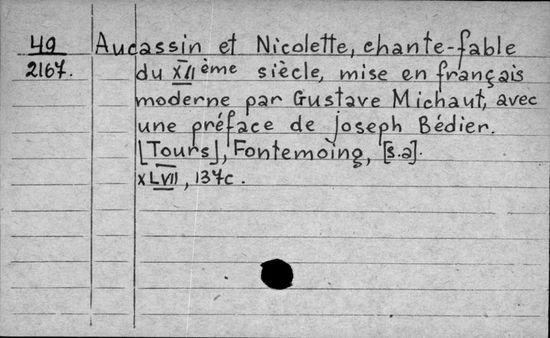 49 Aucassin et Nicolette, chante-fable
2167. du XII ème siècle, mise en français
moderne par Gustave Michaut, avec
une préface de Joseph Bédier.
[Tours], Fontemoing, [s.a].
XLVII, 137c.